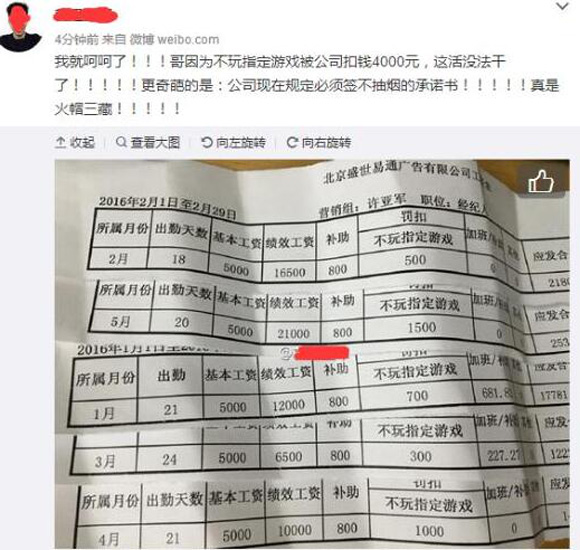 4分钟前 来自 微博 weibo.com
我就呵呵了！！！哥因为不玩指定游戏被公司扣钱4000元，这活没法干
了！！！！！更奇葩的是：公司现在规定必须签不抽烟的承诺书！！！！！真是
火帽三藏！！！！！
收起 查看大图 向左旋转 向右旋转
北京盛世易通广告有限公司工
2016年2月1日至2月29日
营销组：许亚军 职位：经纪人
所属月份 出勤天数 基本工资 绩效工资 补助 罚扣 加班/补 其他 应发合
不玩指定游戏
2月 18 5000 16500 800 500 0 0 2180
所属月份 出勤天数 基本工资 绩效工资 补助 罚扣 加班/补 其他 应发合
不玩指定游戏
5月 20 5000 21000 800 1500 0 0 253
2016年1月1日至2016
所属月份 出勤 基本工资 绩效工资 补助 罚扣 加班/补 其他 应发合
不玩指定游戏
1月 21 5000 12000 800 700 681.8 17781
补助
不玩指定游戏 加班/补
3月 24 5000 6500 800 300 227.27 122
所属月份 出勤天数 基本工资 绩效工资 补助 罚扣 加班/补 应发合
不玩指定游戏
4月 21 5000 10000 800 1000 0 0